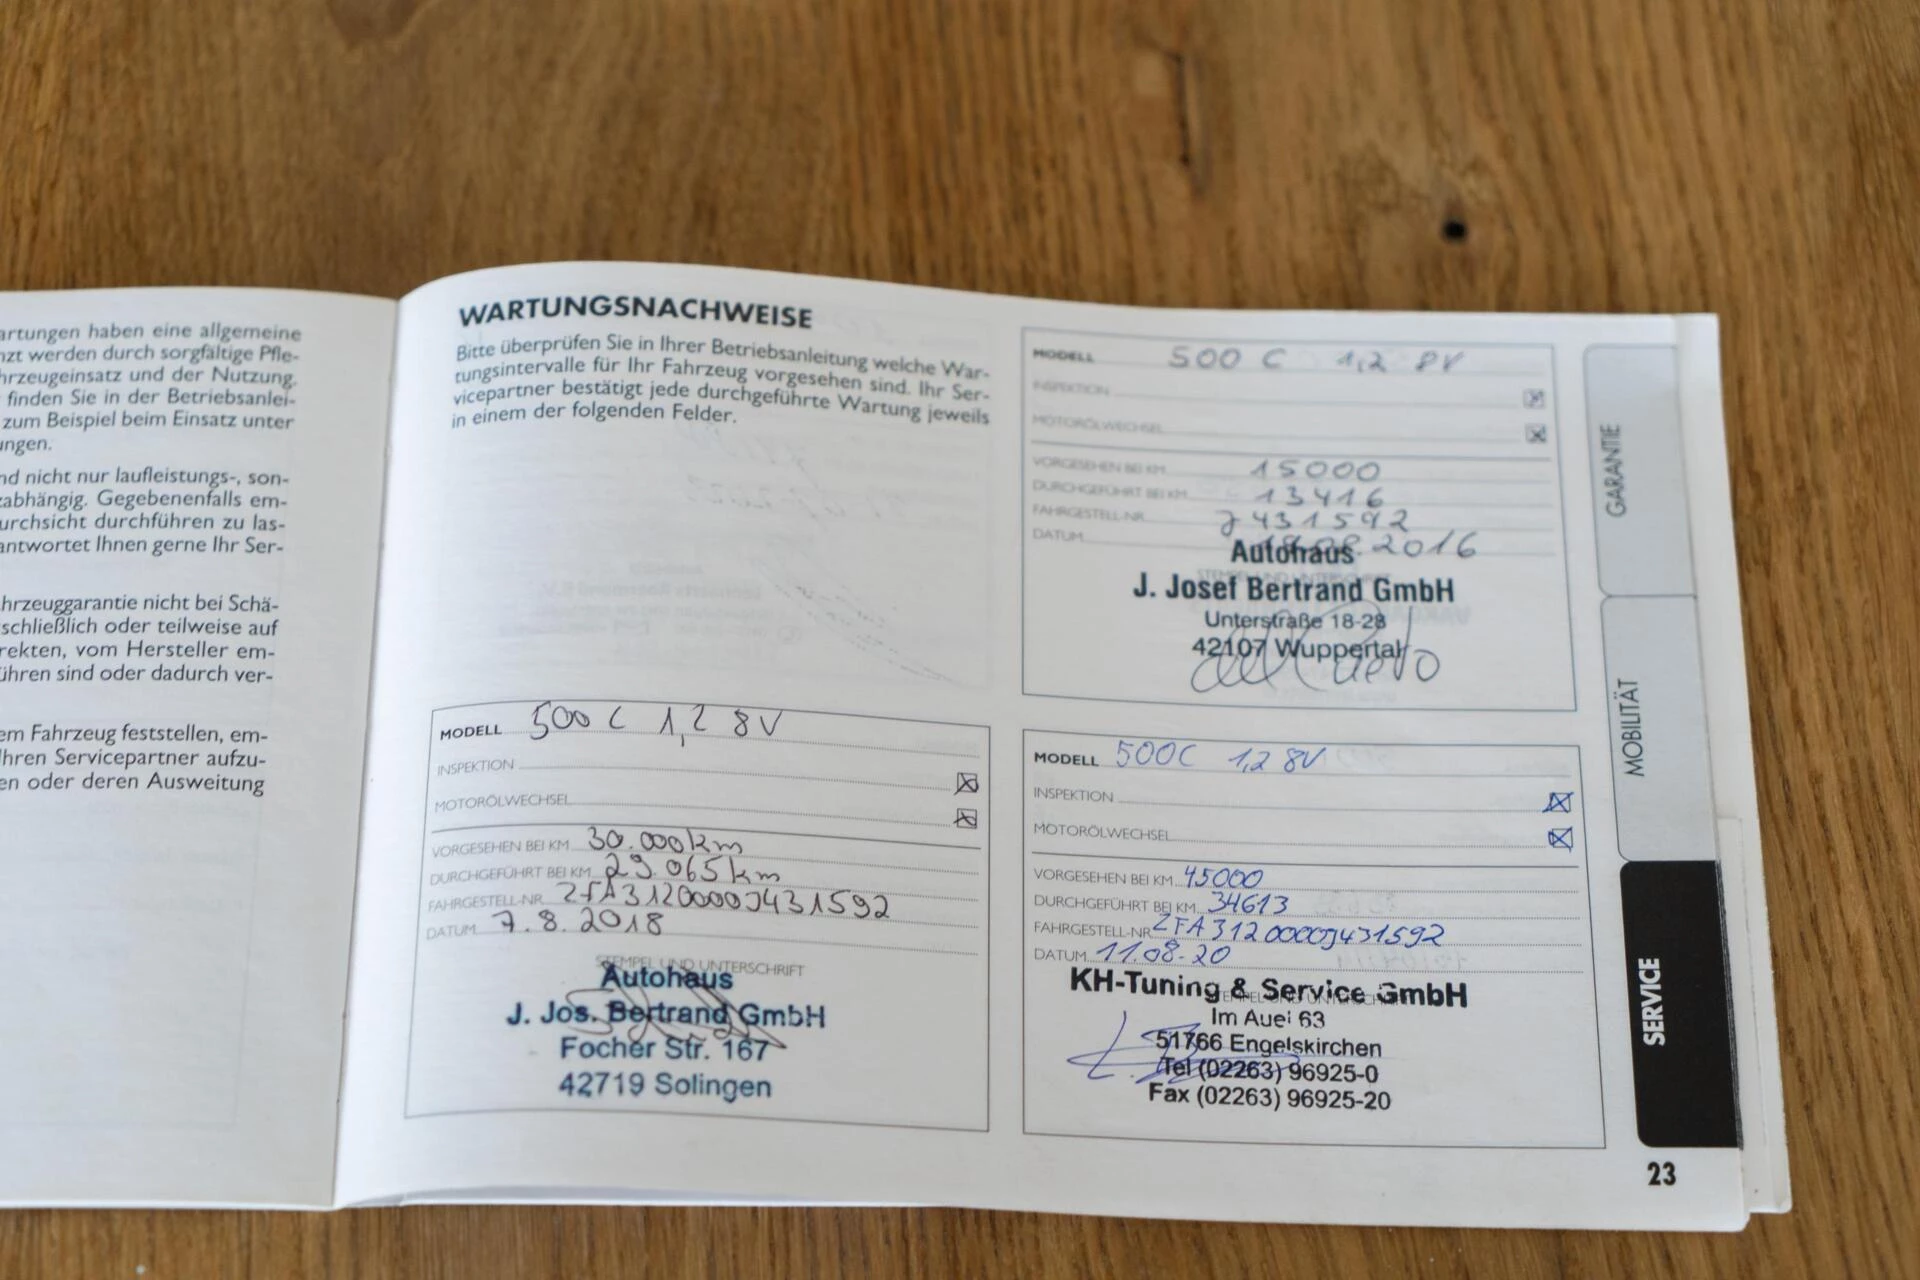 artungen haben eine allgemeine
nzt werden durch sorgfältige Pfle-
hrzeugeinsatz und der Nutzung.
finden Sie in der Betriebsanlei-
zum Beispiel beim Einsatz unter
ungen.
nd nicht nur laufleistungs-, son-
zabhängig. Gegebenenfalls em-
urchsicht durchführen zu las-
antwortet Ihnen gerne Ihr Ser-
hrzeuggarantie nicht bei Schä-
schließlich oder teilweise auf
rekten, vom Hersteller em-
ühren sind oder dadurch ver-
em Fahrzeug feststellen, em-
Ihren Servicepartner aufzu-
en oder deren Ausweitung
WARTUNGSNACHWEISE
Bitte überprüfen Sie in Ihrer Betriebsanleitung welche War-
tungsintervalle für Ihr Fahrzeug vorgesehen sind. Ihr Ser-
vicepartner bestätigt jede durchgeführte Wartung jeweils
in einem der folgenden Felder.
MODELL 500 C 1,2 8V
INSPEKTION
MOTORÖLWECHSEL
VORGESEHEN BEI KM 15000
DURCHGEFÜHRT BEI KM 13416
FAHRGESTELL-NR. J431592
DATUM 2016
STEMPEL UND UNTERSCHRIFT
Autohaus
J. Josef Bertrand GmbH
Unterstraße 18-28
42107 Wuppertal
MODELL 500 C 1,2 8V
INSPEKTION
MOTORÖLWECHSEL
VORGESEHEN BEI KM 30.000km
DURCHGEFÜHRT BEI KM 29.065km
FAHRGESTELL-NR. ZFA3120000J431592
DATUM 7.8.2018
STEMPEL UND UNTERSCHRIFT
Autohaus
J. Jos. Bertrand GmbH
Focher Str. 167
42719 Solingen
MODELL 500C 1,2 8V
INSPEKTION
MOTORÖLWECHSEL
VORGESEHEN BEI KM 45000
DURCHGEFÜHRT BEI KM 34613
FAHRGESTELL-NR. ZFA3120000J431592
DATUM 11.08.20
STEMPEL UND UNTERSCHRIFT
KH-Tuning & Service GmbH
Im Auel 63
51766 Engelskirchen
Tel (02263) 96925-0
Fax (02263) 96925-20
GARANTIE
MOBILITÄT
SERVICE
23